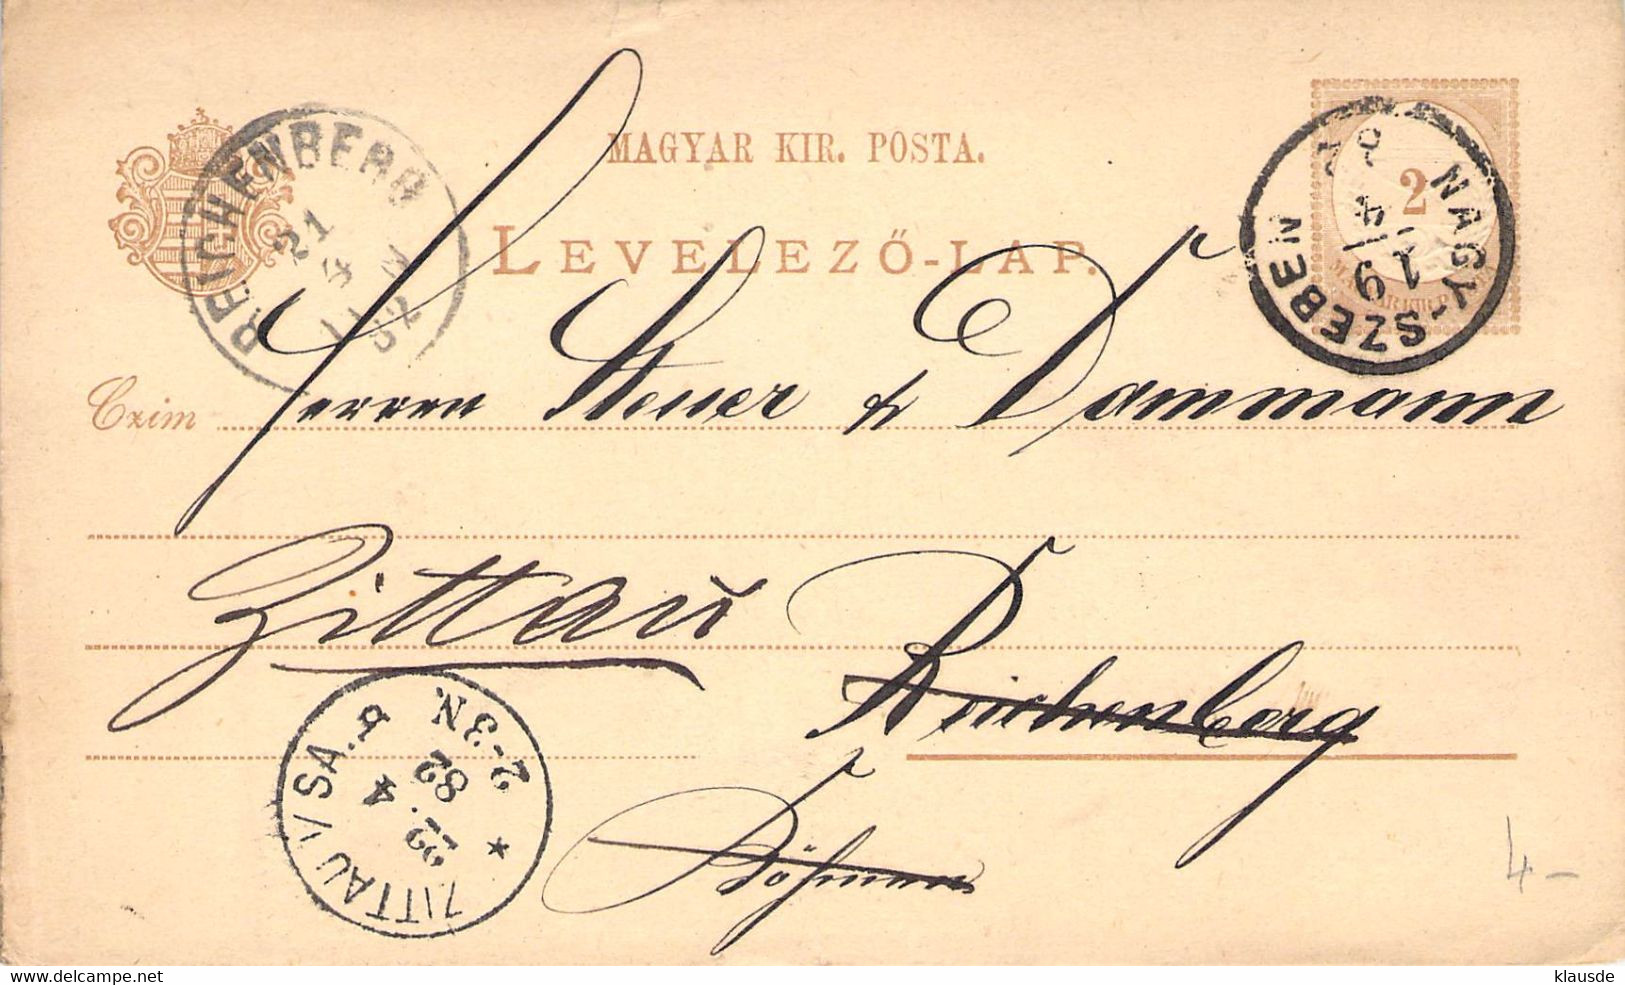 MAGYAR KIR. POSTA.
LEVELEZŐ-LAP.
REICHENBERG
21
4
82
N
NAGY-SZEBEN
19/4
2
MAGYAR KIR. POSTA
Czim Herren Steuer & Dammann
Zittau Reichenberg
Böhmen
ZITTAU I/SA.
22. 4
82
2-3N.
4-
www.delcampe.net
klausde